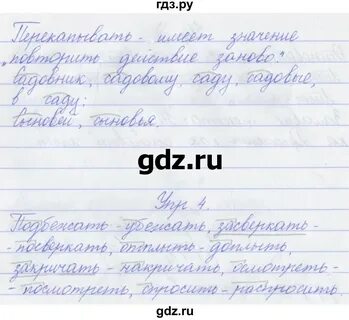 гдз.ру
Перекапывать - имеет значение
„повторить действие заново."
Садовник, садовому, саду, садовые,
в саду;
Сыновей, сыновья.
gdz.ru
Упр 4.
Подбежать - убежать, засверкать -
- посверкать, отплыть - доплыть,
закричать - накричать, осмотреть -
- посмотреть, опросить - распросить.
gdz.ru